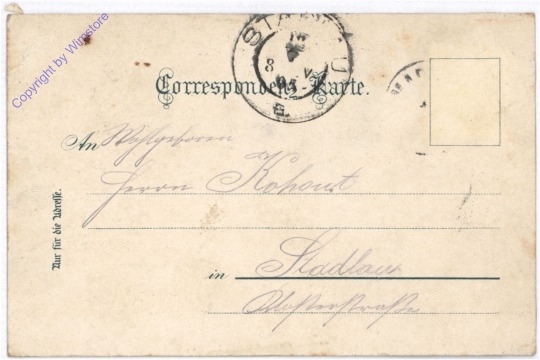 Copyright by Winstore
STADLAU
8 V
95
Correspondenz-Karte.
An Wohlgeboren
Herrn Kohout
in Stadlau
Klosterstraße
Nur für die Adresse.